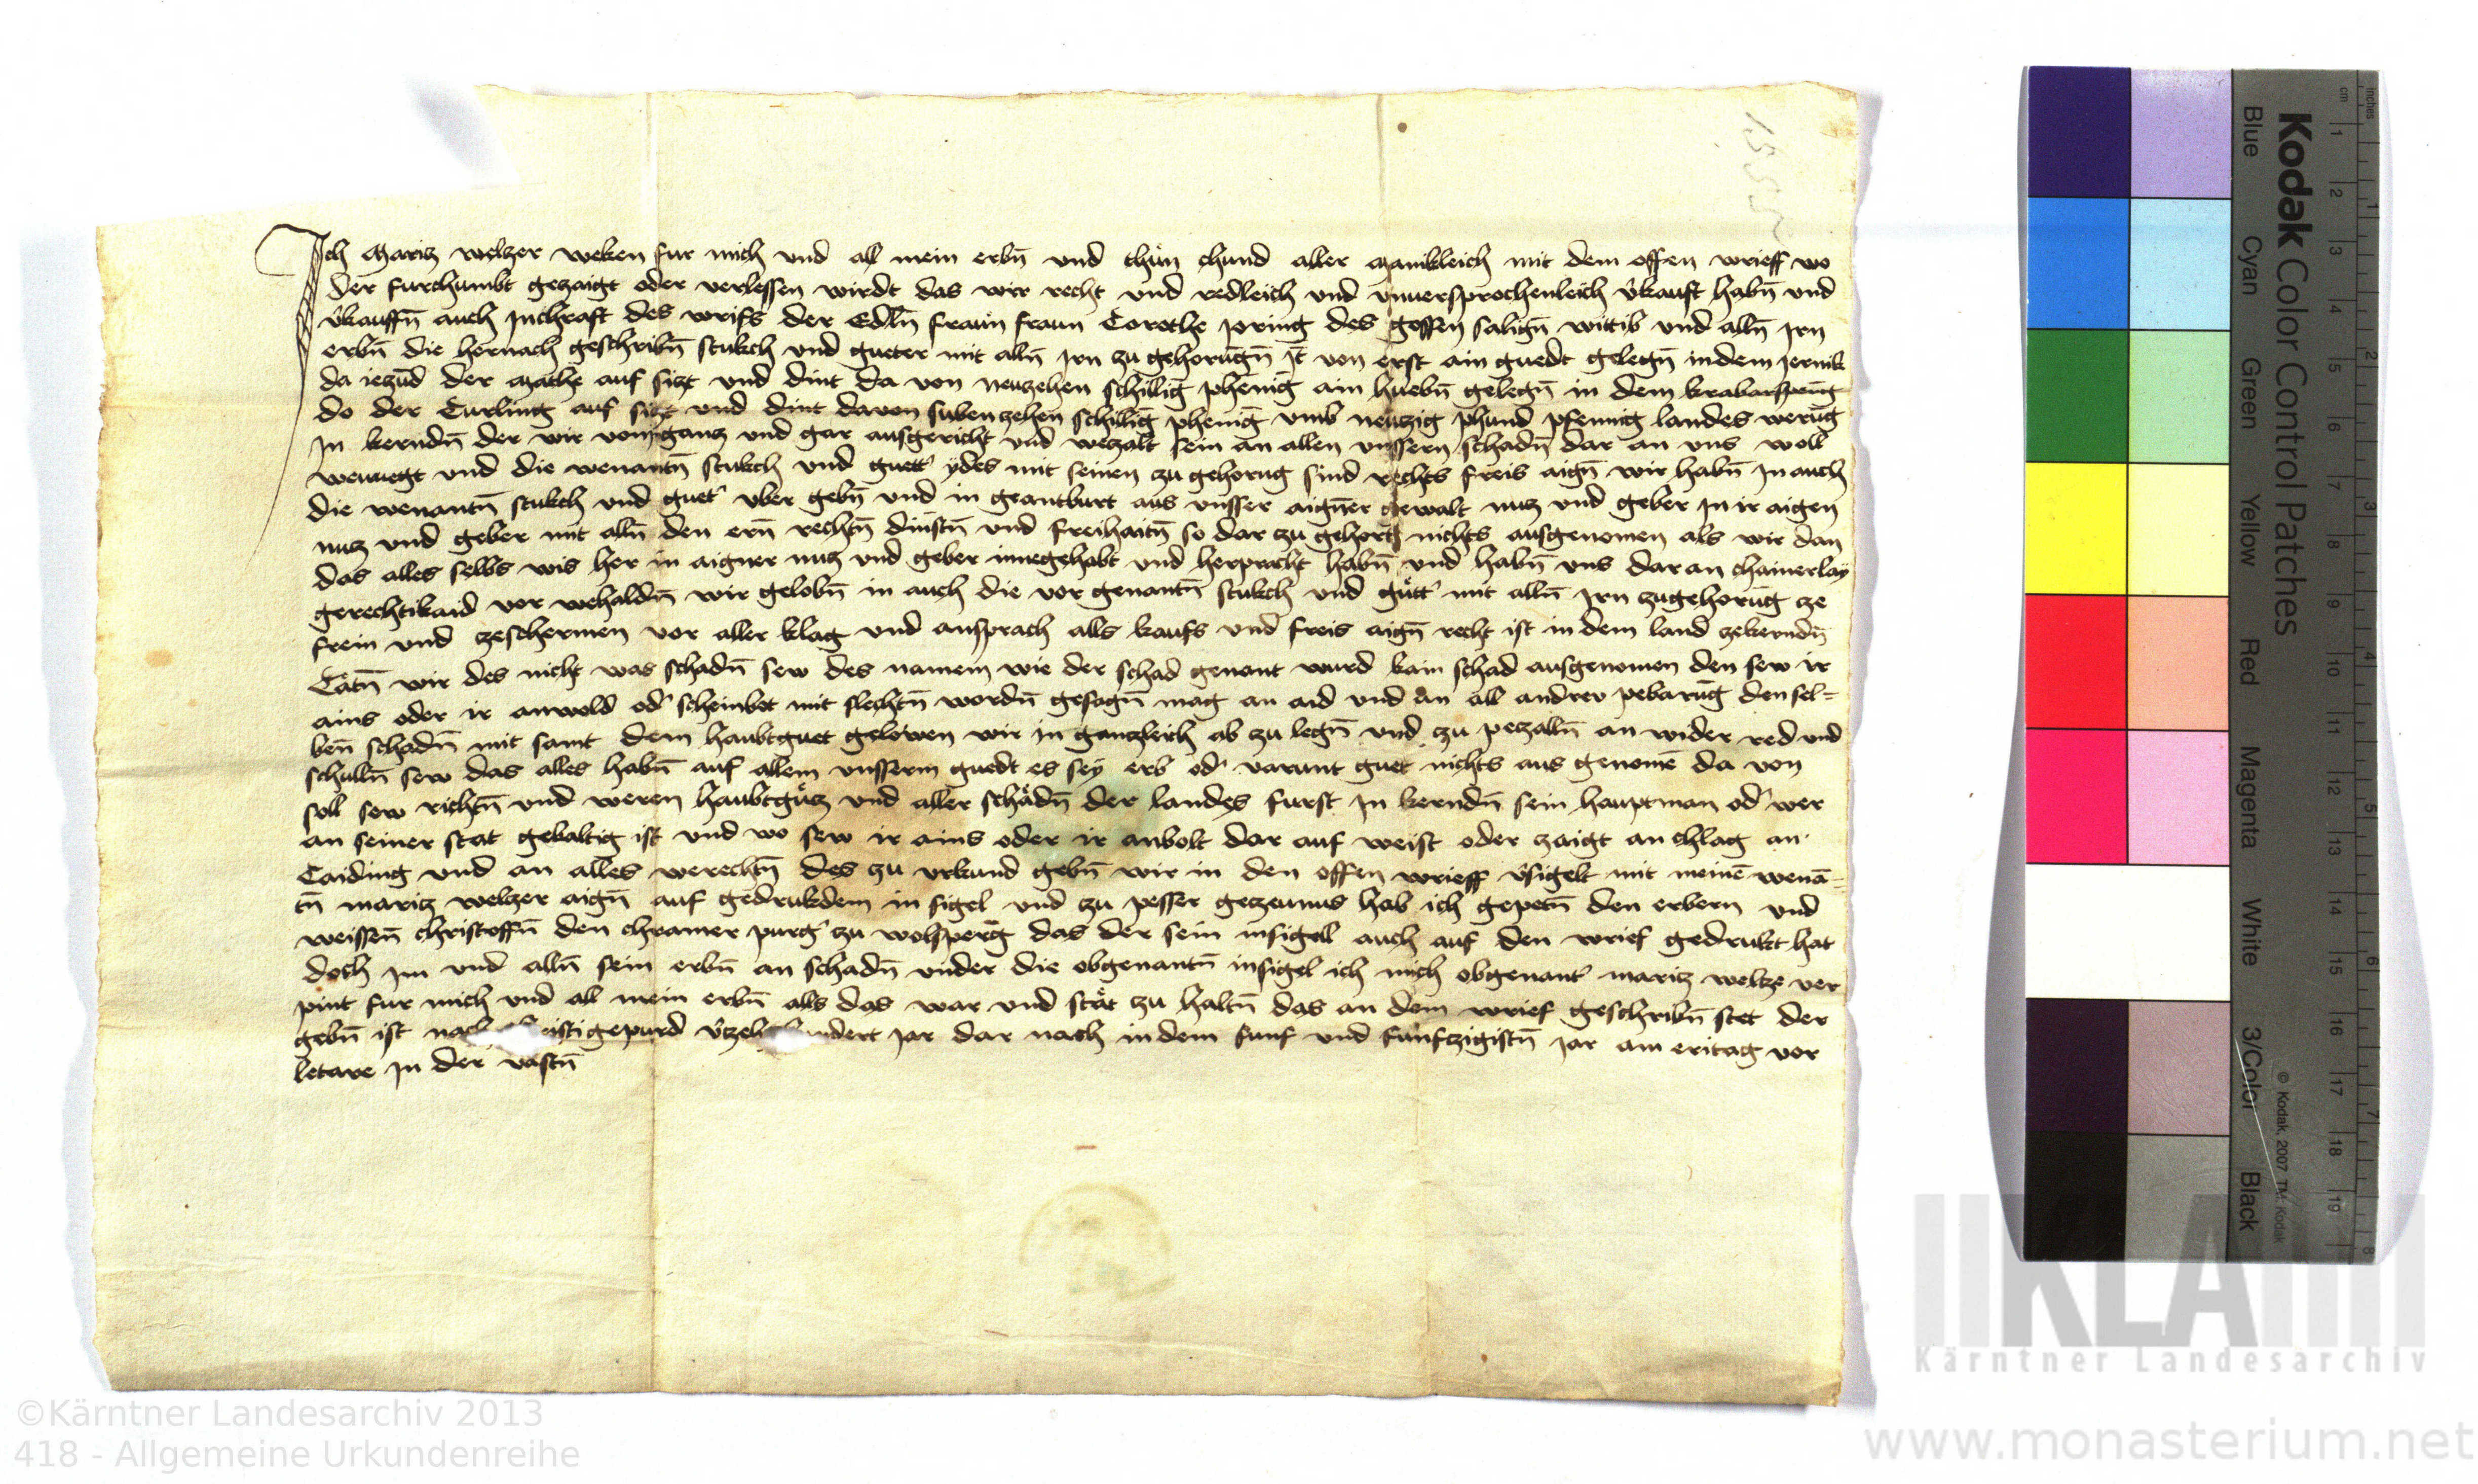 Ich Maritz welczer weken fur mich und all mein erbn̄ und thun chund aller manikleich mit dem offen wrieff wo
der furchumbt geczaigt oder verlessen wirdt das wir recht und redleich und unversprochenleich v̓kauft habn̄ und
v̓kauffn̄ auch In chraft des wrifs der Edln̄ fraun fraun Dorothe des gossen salign̄ wittib und alln̄ Irn
erbn̄ die hernach geschribn̄ stukch und gueter mit alln̄ Irn zu gehorūgn̄ It̄ von erst ain guedt gelegn̄ in dem
da iezūd der auf sizt und dint da von newzehen schillīg phenīg ain huebn̄ gelegn̄ in dem
do der auf sizt und dint davon subenzehen schillīg phenīg umb newzig phund pfennig landes werūg
In kerndn̄ der wir von ganz und gar ausgericht und weczalt sein an allen unssern schadn̄ dar an uns woll
wenuegt und die wenantn̄ stukch und guett̓ ydes mit seinen zu gehorug sind rechts freis aign̄ wir habn̄ In auch
die wenantn̄ stukch und guet̓ uber gebn̄ und in geantburt aus unsser aigner gewalt nucz und geber In ir aigen
nucz und geber mit alln̄ den ern̄ rechtn̄ dinstn̄ und freihaitn̄ so dar zu gehort nichts ausgenomen als wir dan
das alles selbs wis her in aigner nucz und geber innegehabt und herpracht habn̄ und habn̄ uns dar an chainerlay
gerechtikaid vor wehaldn̄ wir gelobn̄ in auch die vor genantn̄ stukch und guͤtt̓ mit alln̄ Irn zugehorūg ze
frein und zeschermen vor aller klag und ansprach alls kaufs und freis aign̄ recht ist in dem land zekerndn̄
Tatn̄ wir des nicht was schadn̄ sew des namem wie der schad genant wurd kain schad ausgenomen den sew ir
ains oder ir anwold od̓ scheinbot mit slechtn̄ wordn̄ gesagn̄ mag an aid und an all andrew pebarūg den sel=
ben̄ schadn̄ mit samt dem haubtguet gelowen wir in ganczleich ab zu legn̄ und zu peczalln̄ an wider red und
schulln̄ sew das alles habn̄ auf allem unsserm guedt es sey erb od̓ varunt guet nichts aus genomē da von
soll sew richtn̄ und weren haubtguͤcz und aller schaͤdn̄ der landes furst In kerndn̄ sein hauptman od̓ wer
an seiner stat gebaltig ist und wo sew ir ains oder ir anbolt dar auf weist oder zaigt an chlag an
Taiding und an alles werechtn̄ des zu urkund gebn̄ wir in den offen wrieff v̓sigelt mit meinē wenā=
tn̄ maritz welczer aign̄ auf gedrukdem in sigel und zu pesser geczeunus hab ich gepetn̄ den erbern und
weissen̄ christoffn̄ den chramer purg̓ zu wolfsperg das der sein insigel auch auf den wrief gedrukt hat
doch Im und alln̄ sein erbn̄ an schadn̄ under die obgenantn̄ insigel ich mich obgenant̓ maritz weltze ver
pint fur mich und all mein erbn̄ alls das war und staͤt zu haltn̄ das an dem wrief geschribn̄ stet der
gebn̄ ist nach eistigepurd v̓zeh undert Jar dar nach in dem funf und funfczigistn̄ Jar am eritag vor
letare In der vastn̄
1455
Kodak Color Control Patches
Blue Cyan Green Yellow Red Magenta White 3/Color Black
© Kodak, 2007 TM: Kodak
cm 1 2 3 4 5 6 7 8 9 10 11 12 13 14 15 16 17 18 19
inches 1 2 3 4 5 6 7 8
KLA
Kärntner Landesarchiv
©Kärntner Landesarchiv 2013
418 - Allgemeine Urkundenreihe
www.monasterium.net